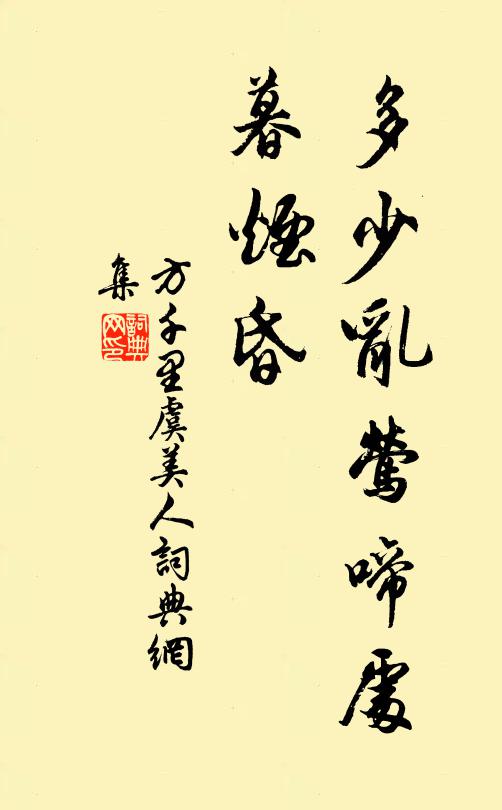 多少亂鶯啼處
暮煙昏
方千里虞美人詞典網
集
詞典
网印